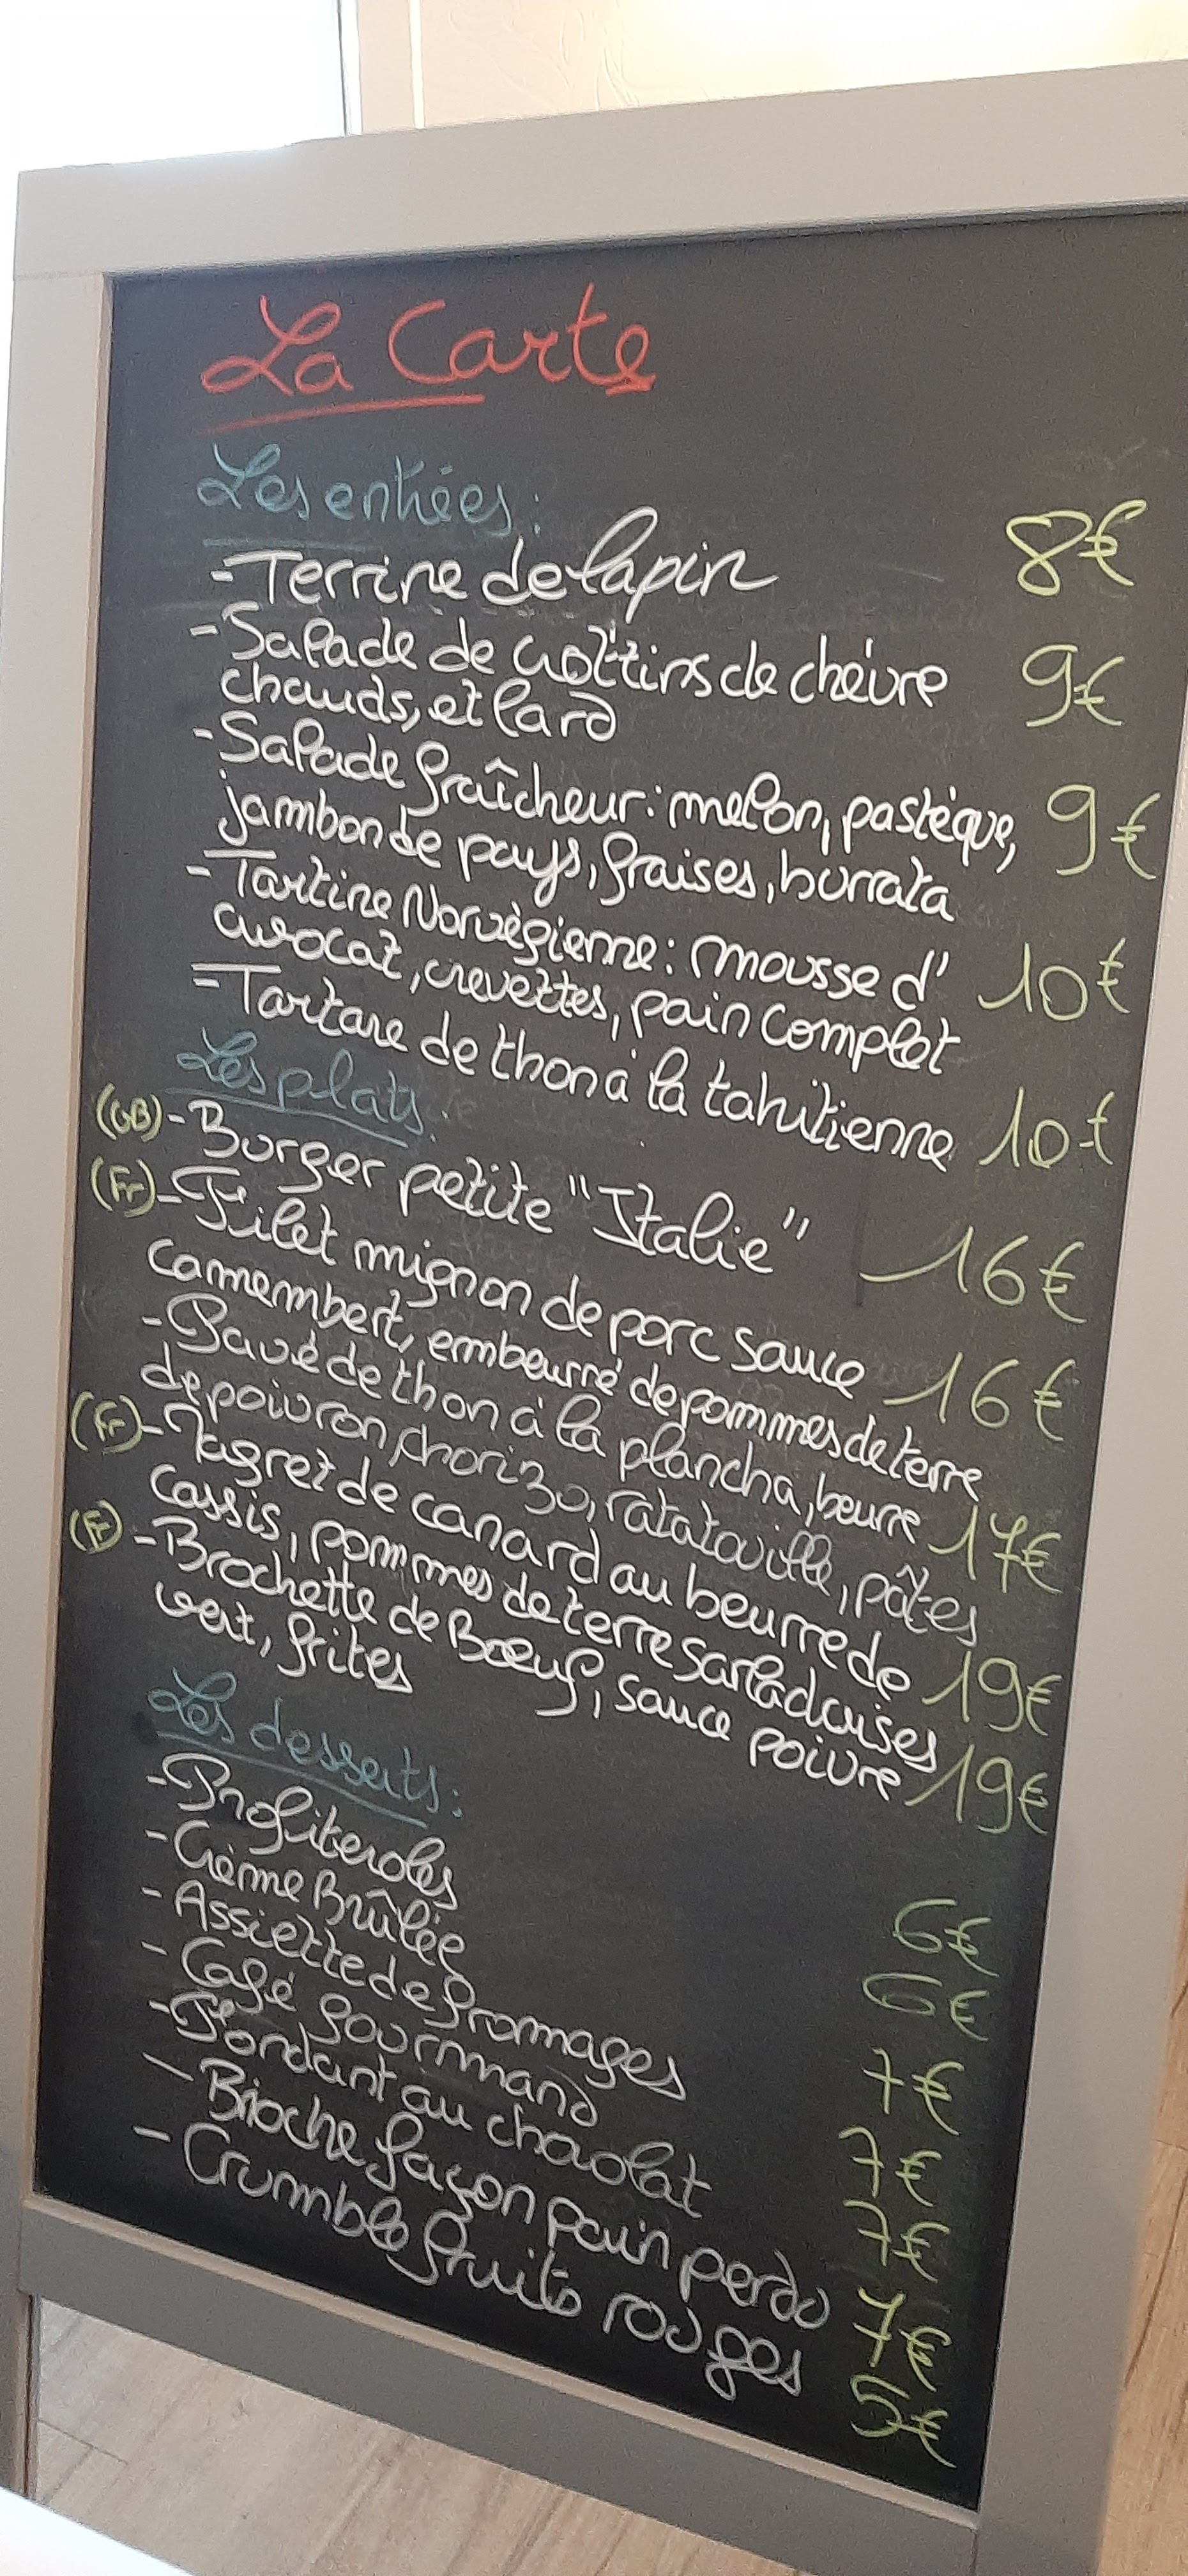 La Carte
Les entrées :
- Terrine de lapin 8€
- Salade de crottins de chèvre 9€
chauds, et lard
- Salade fraîcheur : melon, pastèque, 9€
jambon de pays, fraises, burrata
- Tartine Norvègienne : mousse d' 10€
avocat, crevettes, pain complet
- Tartare de thon à la tahitienne 10€
Les plats :
(GB) - Burger petite "Italie" 16€
(Fr) - Filet mignon de porc sauce 16€
camembert, embeurré de pommes de terre
- Pavé de thon à la plancha, beurre 17€
de poivron, chorizo, ratatouille, pâtes
(Fr) - Magret de canard au beurre de 19€
cassis, pommes de terre sarladaises
(Fr) - Brochette de Boeuf, sauce poivre 19€
vert, frites
Les desserts :
- Profiteroles 6€
- Crème Brûlée 6€
- Assiette de fromages 7€
- Café gourmand 7€
- Fondant au chocolat 7€
- Brioche façon pain perdu 7€
- Crumble fruits rouges 5€